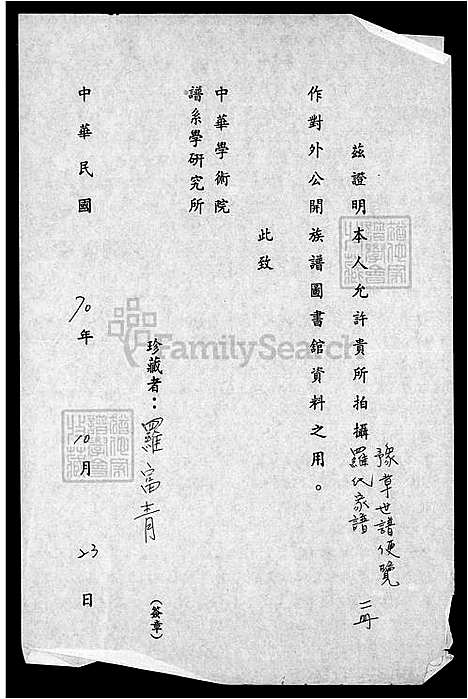 茲證明本人允許貴所拍攝羅氏家譜
豫章世譜便覽
二冊
作對外公開族譜圖書館資料之用。
此致
中華學術院
譜系學研究所
珍藏者：羅富青
(簽章)
中華民國70年10月23日
FamilySearch